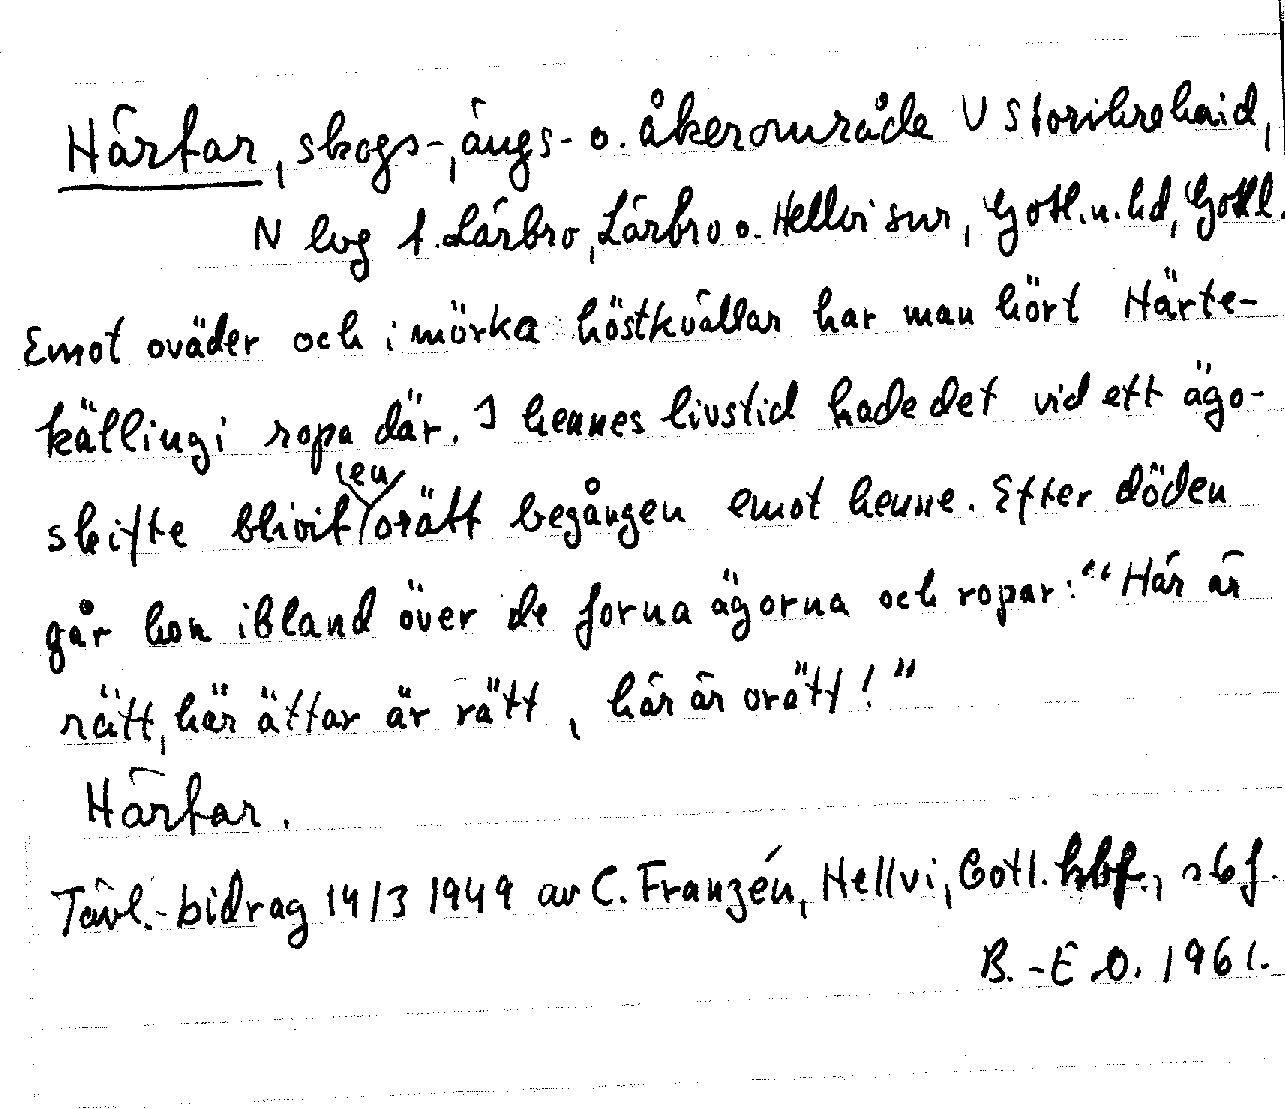 Härtar, skogs-, ängs- o. åkerområde V Storikrehaid,
N lvg t. Lärbro, Lärbro o. Hellvi snr, Gotl. n. hd, Gotl.
Emot oväder och i mörka höstkvällar har man hört Härte-
källingi ropa där. I hennes livstid hade det vid ett ägo-
skifte blivit en orätt begången emot henne. Efter döden
går hon ibland över de forna ägorna och ropar: "Här är
rätt, här ättar är rätt, här är orätt!"
Härtar.
Tävl.-bidrag 14/3 1949 av C. Franzén, Hellvi, Gotl. hbf., sbf.
B.-E O. 1961.